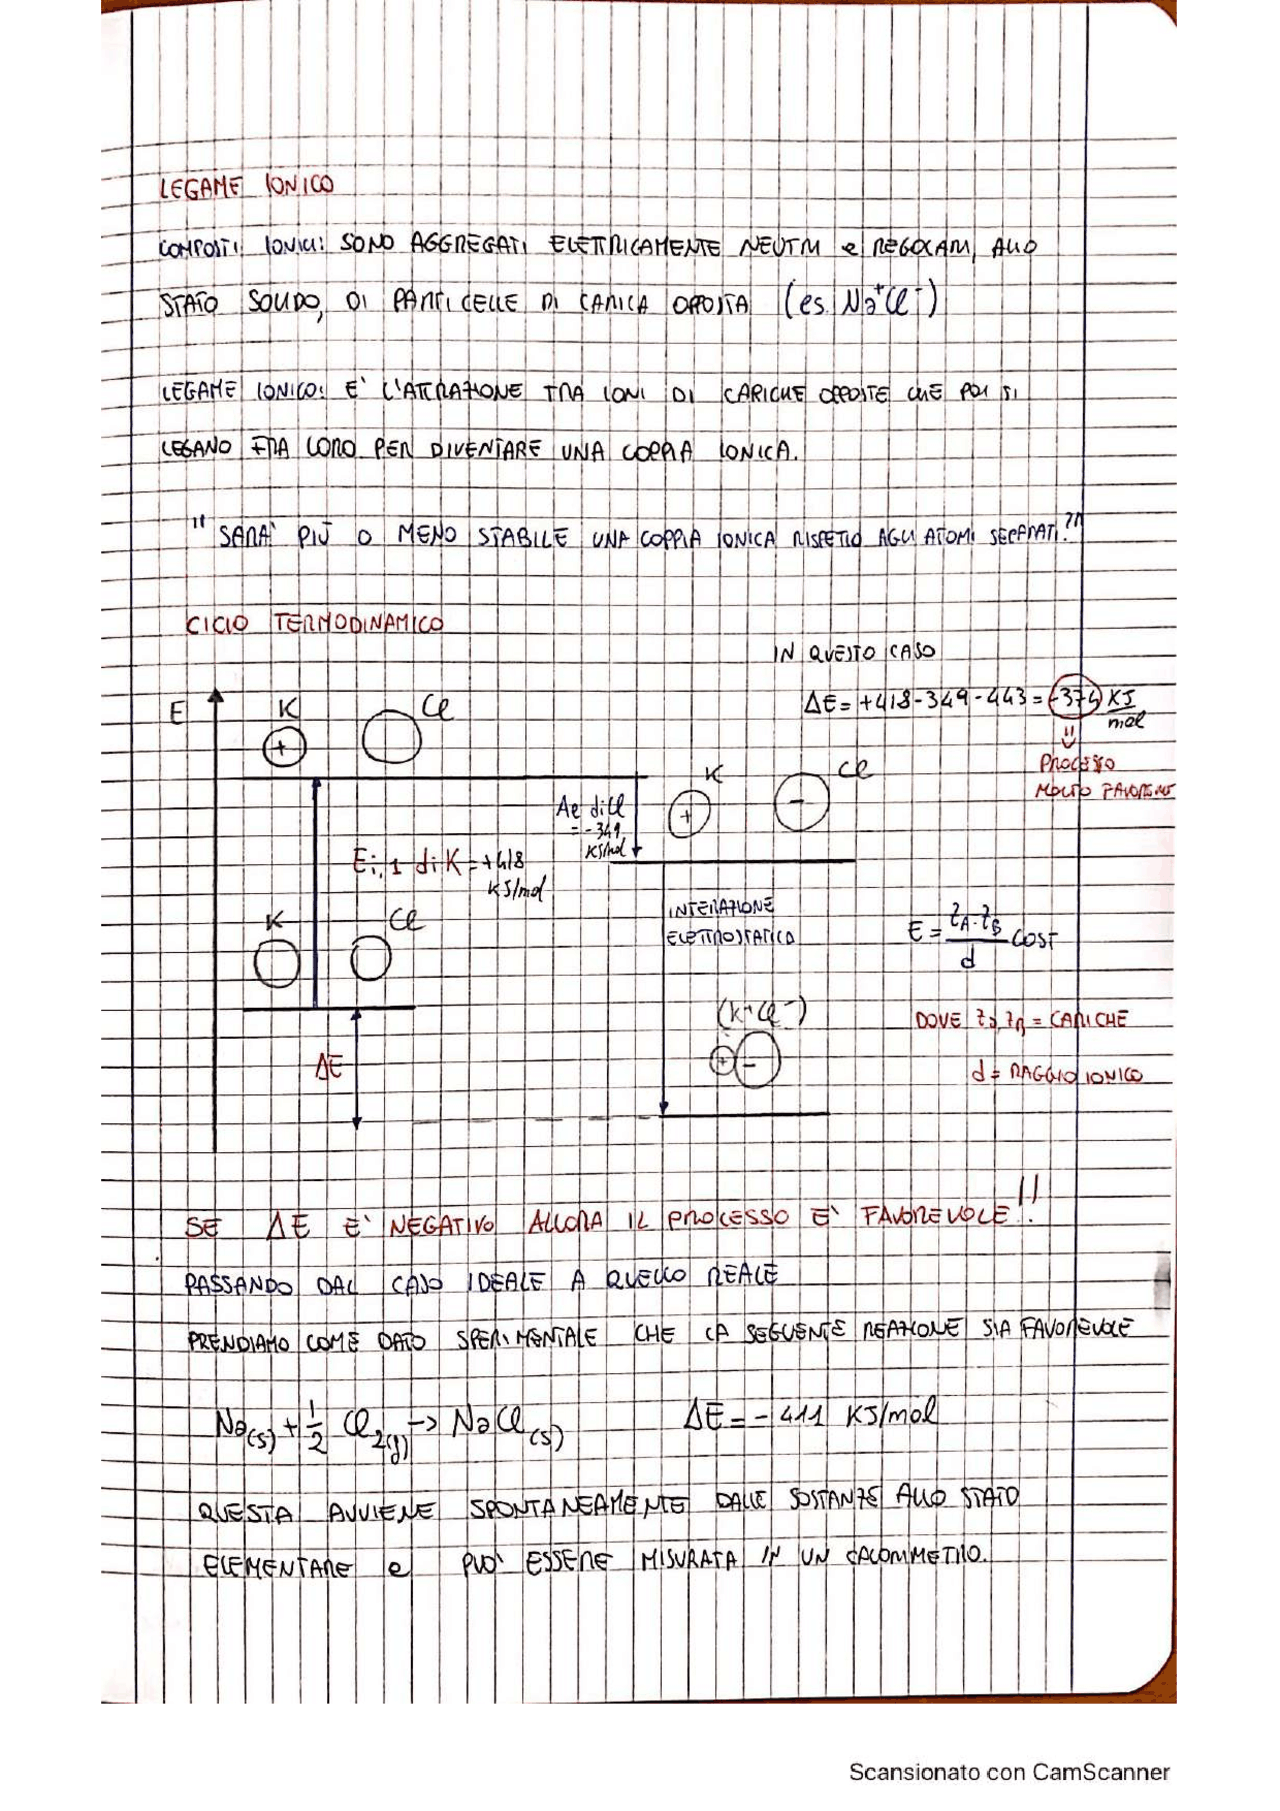 LEGAME IONICO
COMPOSTI IONICI: SONO AGGREGATI ELETTRICAMENTE NEUTRI e REGOLARI, ALLO
STATO SOLIDO, DI PARTICELLE DI CARICA OPPOSTA (es. Na⁺Cl⁻)
LEGAME IONICO: E' L'ATTRAZIONE TRA IONI DI CARICHE OPPOSTE CHE POI SI
LEGANO FRA LORO PER DIVENTARE UNA COPPIA IONICA.
" SARA' PIÙ O MENO STABILE UNA COPPIA IONICA RISPETTO AGLI ATOMI SEPARATI?"
CICLO TERMODINAMICO
IN QUESTO CASO
ΔE = +418 - 349 - 443 = -374 KJ/mol
PROCESSO
MOLTO FAVOREVOLE
E
K Cl
+
K Cl
+ -
Ae di Cl
= -349
KJ/mol
Ei,1 di K = +418
KJ/mol
K Cl
INTERAZIONE
ELETTROSTATICA
E = zA·zB/d cost
(K⁺Cl⁻)
+ -
DOVE zA, zB = CARICHE
d = RAGGIO IONICO
ΔE
SE ΔE E' NEGATIVO ALLORA IL PROCESSO E' FAVOREVOLE!!
PASSANDO DAL CASO IDEALE A QUELLO REALE
PRENDIAMO COME DATO SPERIMENTALE CHE LA SEGUENTE REAZIONE SIA FAVOREVOLE
Na(s) + 1/2 Cl2(g) → NaCl(s) ΔE = - 411 KJ/mol
QUESTA AVVIENE SPONTANEAMENTE DALLE SOSTANZE ALLO STATO
ELEMENTARE e PUO' ESSERE MISURATA IN UN CALORIMETRO.
Scansionato con CamScanner